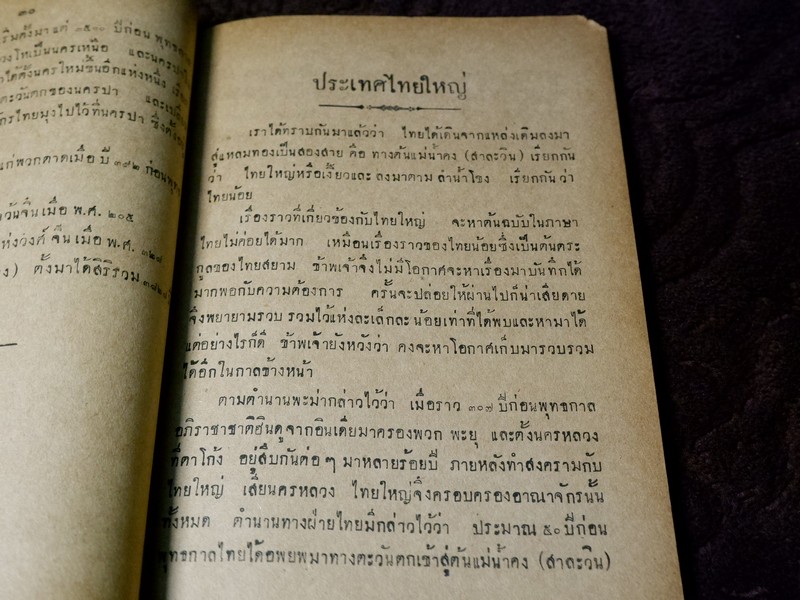 ๓๐
ริ่มตั้งมา แต่ ๓๕๐๐ ปีก่อน พุทธ
โทเป็นนครเหนือ และนคร
ได้ตั้งนครใหม่ขึ้นอีกแห่งหนึ่ง
ตะวันตกของนครปา และ
กรไทยมุงไปไว้ที่นครปา ซึ่งตั้ง
แก่พวกตาดเมื่อ ปี ๓๙๒ ก่อนพุท
วันจีน เมื่อ พ.ศ. ๒๐๕
ห่งวงศ์ จีน เมื่อ พ.ศ. ๓๒๗
ง) ตั้งมาได้สิริรวม
ประเทศไทยใหญ่
เราได้ทราบกันมาแล้วว่า ไทยได้เดินจากแหล่งเดิมลงมา
สู่แหลมทองเป็นสองสาย คือ ทางต้นแม่น้ำคง (สาละวิน) เรียกกัน
ว่า ไทยใหญ่หรือเงี้ยวและ ลงมาตาม ลำน้ำโขง เรียกกัน ว่า
ไทยน้อย
เรื่องราวที่เกี่ยวข้องกับไทยใหญ่ จะหาต้นฉบับในภาษา
ไทยไม่ค่อยได้มาก เหมือนเรื่องราวของไทยน้อยซึ่งเป็นต้นตระ
กูลของไทยสยาม ข้าพเจ้าจึงไม่มีโอกาศจะหาเรื่องมาบันทึกได้
มากพอกับความต้องการ ครั้นจะปล่อยให้ผ่านไปก็น่าเสียดาย
จึงพยายามรวบ รวมไว้แห่งละเล็กละ น้อยเท่าที่ได้พบและหามาได้
แต่อย่างไรก็ดี ข้าพเจ้ายังหวังว่า คงจะหาโอกาศเก็บมารวบรวม
ได้อีกในกาลข้างหน้า
ตามตำนานพะม่ากล่าวไว้ว่า เมื่อราว ๓๐๗ ปีก่อนพุทธกาล
อภิราชาชาติฮินดูจากอินเดียมาครองพวก พะยุ และตั้งนครหลวง
ที่ตาโก้ง อยู่สืบกันต่อ ๆ มาหลายร้อยปี ภายหลังทำสงครามกับ
ไทยใหญ่ เสียนครหลวง ไทยใหญ่จึงครอบครองอาณาจักรนั้น
ทั้งหมด ตำนานทางฝ่ายไทยมีกล่าวไว้ว่า ประมาณ ๕๐ ปีก่อน
พุทธกาลไทยได้อพยพมาทางตะวันตกเข้าสู่ต้นแม่น้ำคง (สาละวิน)